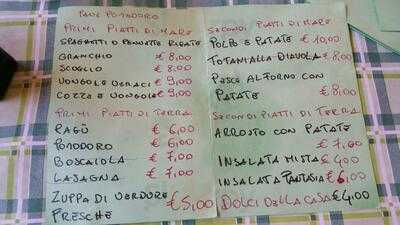 PANE POMODORO
PRIMI PIATTI DI MARE
SPAGHETTI O PENNETTE RIGATE
GRANCHIO € 8,00
SCOGLIO € 8,00
VONGOLE VERACI € 9,00
COZZE E VONGOLE € 9,00
PRIMI PIATTI DI TERRA
RAGÙ € 6,00
POMODORO € 6,00
BOSCAIOLA € 7,00
LASAGNA € 7,00
ZUPPA DI VERDURE
FRESCHE €5,00
SECONDI PIATTI DI MARE
POLPO E PATATE € 10,00
TOTANI ALLA DIAVOLA € 8,00
PESCE AL FORNO CON
PATATE € 8,00
SECONDI PIATTI DI TERRA
ARROSTO CON PATATE
€ 7,00
INSALATA MISTA € 4,00
INSALATA FANTASIA € 6,00
DOLCI DELLA CASA € 4,00